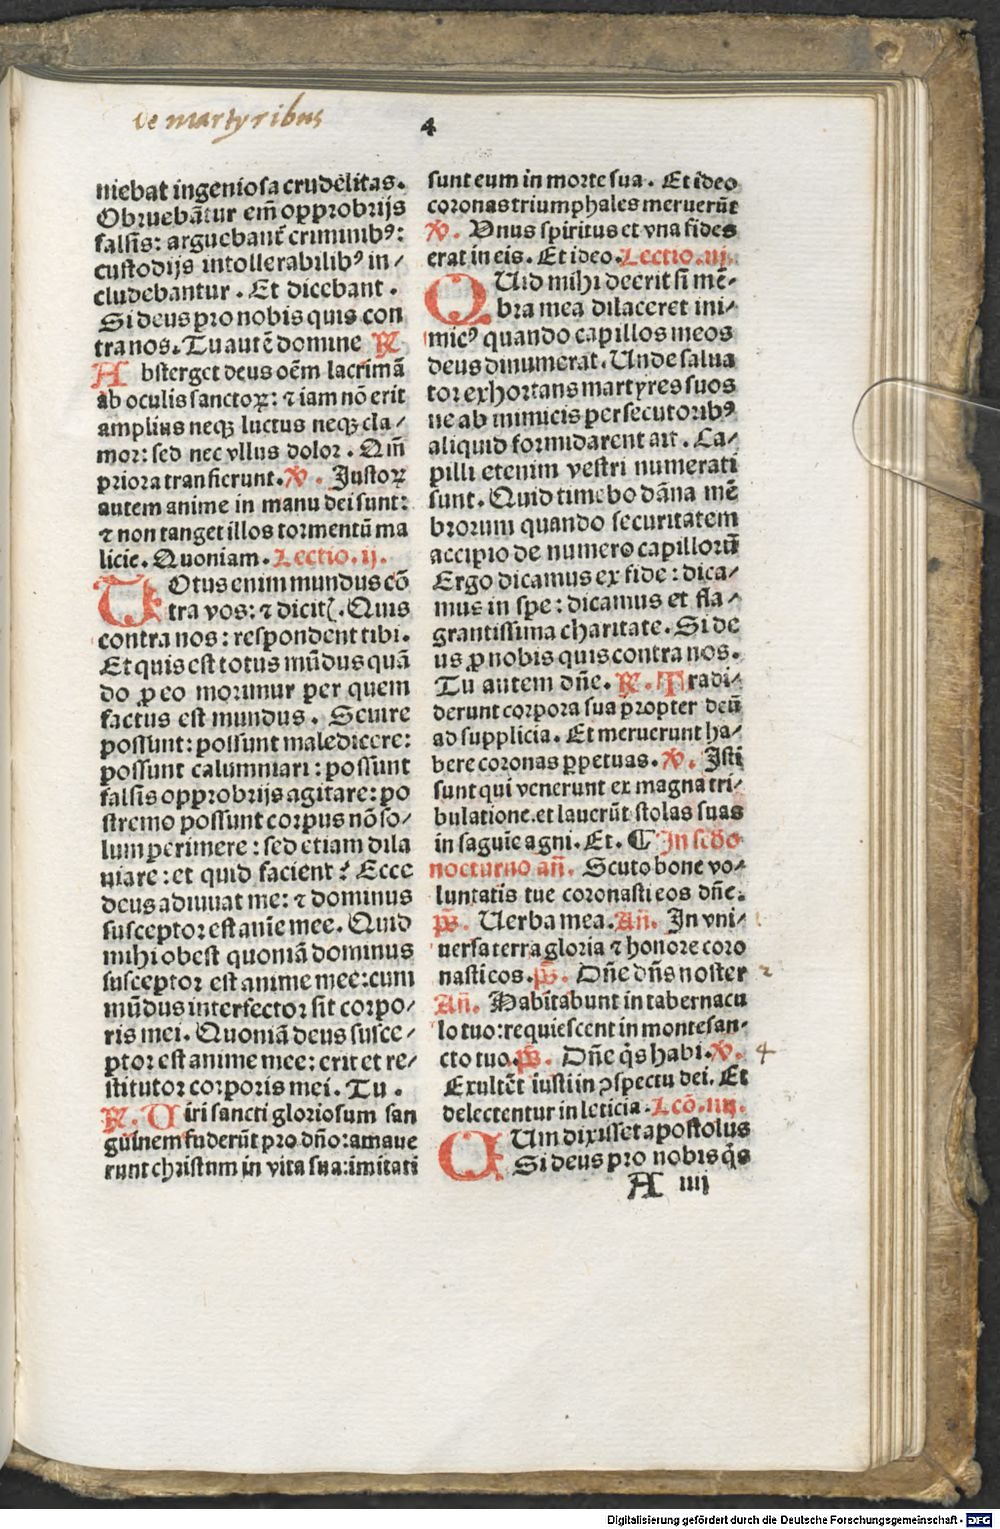 de martyribus
4
niebat ingeniosa crudelitas.
Obruebãtur em̃ opprobrijs
falsis: arguebant᷑ criminibꝰ:
custodijs intollerabilibꝰ in⸗
cludebantur. Et dicebant.
Si deus pro nobis quis con
tra nos. Tu autẽ domine ℟
Absterget deus oẽm lacrimã
ab oculis sanctoꝝ: ⁊ iam nõ erit
amplius neqꝫ luctus neqꝫ cla⸗
mor: sed nec vllus dolor. Qm̃
priora transierunt. ℣. Justoꝝ
autem anime in manu dei sunt:
⁊ non tanget illos tormentũ ma
licie. Quoniam. Lectio.ij.
TOtus enim mundus cõ
tra vos: ⁊ dicit᷑. Quis
contra nos: respondent tibi.
Et quis est totus mũdus quã
do ꝓ eo morimur per quem
factus est mundus. Seuire
possunt: possunt maledicere:
possunt calumniari: possunt
falsis opprobrijs agitare: po
stremo possunt corpus nõ so⸗
lum perimere: sed etiam dila
niare: et quid facient? Ecce
deus adiuuat me: ⁊ dominus
susceptor est anie mee. Quid
mihi obest quoniã dominus
susceptor est anime mee: cum
mũdus interfector sit corpo⸗
ris mei. Quoniã deus susce⸗
ptor est anime mee: erit et re⸗
stitutor corporis mei. Tu.
℟. Uiri sancti gloriosum san
guinem fuderũt pro dño: amaue
runt christum in vita sua: imitati
sunt eum in morte sua. Et ideo
coronas triumphales meruerũt
℣. Unus spiritus et vna fides
erat in eis. Et ideo. Lectio.iij.
QUid mihi deerit si mẽ⸗
bra mea dilaceret ini⸗
micꝰ quando capillos meos
deus dinumerat. Unde salua
tor exhortans martyres suos
ne ab inimicis persecutoribꝰ
aliquid formidarent ait. Ca⸗
pilli etenim vestri numerati
sunt. Quid timebo dãna mẽ
brorum quando securitatem
accipio de numero capillorũ
Ergo dicamus ex fide: dica⸗
mus in spe: dicamus et fla⸗
grantissima charitate. Si de
us ꝓ nobis quis contra nos.
Tu autem dñe. ℟. Tradi⸗
derunt corpora sua propter deũ
ad supplicia. Et meruerunt ha⸗
bere coronas ꝑpetuas. ℣. Isti
sunt qui venerunt ex magna tri⸗
bulatione. et lauerũt stolas suas
in saguĩe agni. Et. ¶ In scḋo
nocturno añ. Scuto bone vo⸗
luntatis tue coronasti eos dñe.
p̃s. Uerba mea. Añ. In vni⸗
uersa terra gloria ⁊ honore coro
nasti eos. p̃s. Dñe dñs noster
2
Añ. Habitabunt in tabernacu
lo tuo: requiescent in monte san⸗
cto tuo. p̃s. Dñe q̃s habi. ℣.
4
Exultẽt iusti in ꝯspectu dei. Et
delectentur in leticia. Lcõ.iiij.
CUm dixisset apostolus
Si deus pro nobis q̃s
A iiij
Digitalisierung gefördert durch die Deutsche Forschungsgemeinschaft - DFG